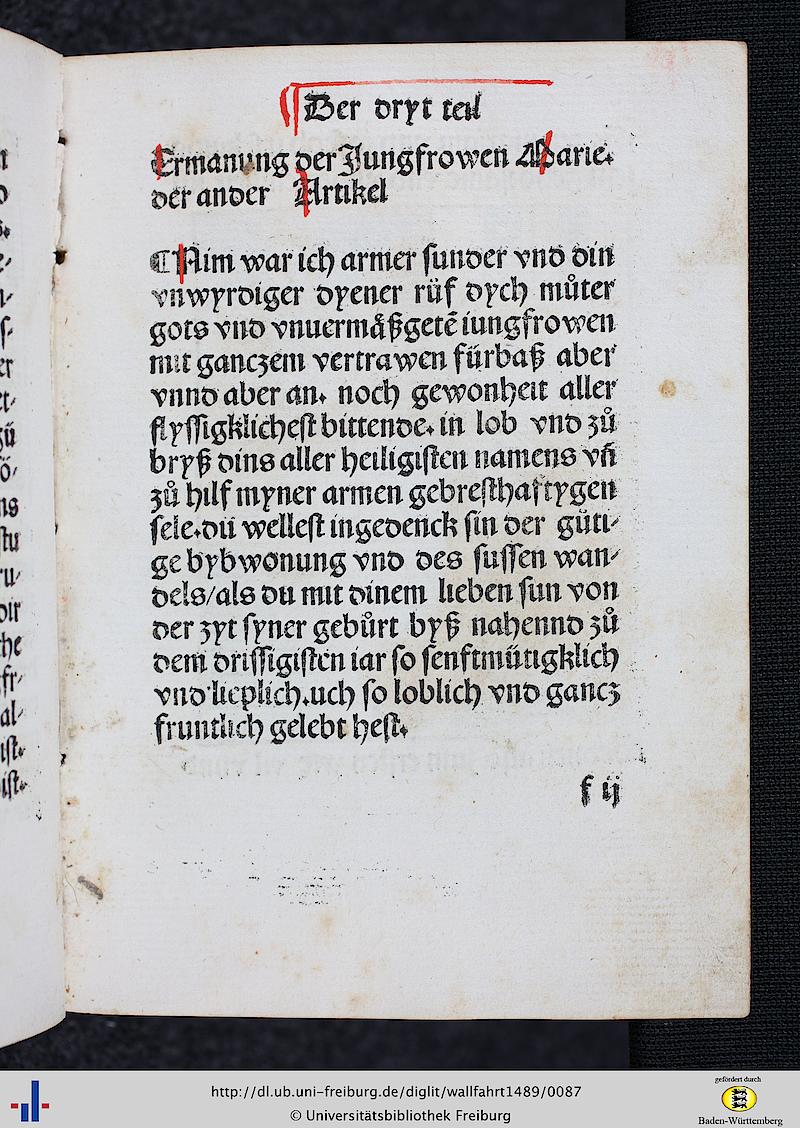 Der dryt teil
Ermanung der Jungfrowen Marie.
der ander Artikel
¶ Nim war ich armer sunder vnd din
vnwyrdiger dyener rüf dych můter
gots vnd vnuermåßgetē iungfrowen
mit ganczem vertrawen fürbaß aber
vnnd aber an. noch gewonheit aller
flyssigklichest bittende. in lob vnd zů
bryß dins aller heiligisten namens vn̄
zů hilf myner armen gebresthaftygen
sele. du wellest ingedenck sin der güti⸗
ge bybwonung vnd des sussen wan⸗
dels/als du mit dinem lieben sun von
der zyt syner gebůrt byß nahennd zů
dem drissigisten iar so senftmütigklich
vnd lieplich. uch so loblich vnd gancz
fruntlich gelebt hest.
f ij
http://dl.ub.uni-freiburg.de/diglit/wallfahrt1489/0087
© Universitätsbibliothek Freiburg
gefördert durch
Baden-Württemberg